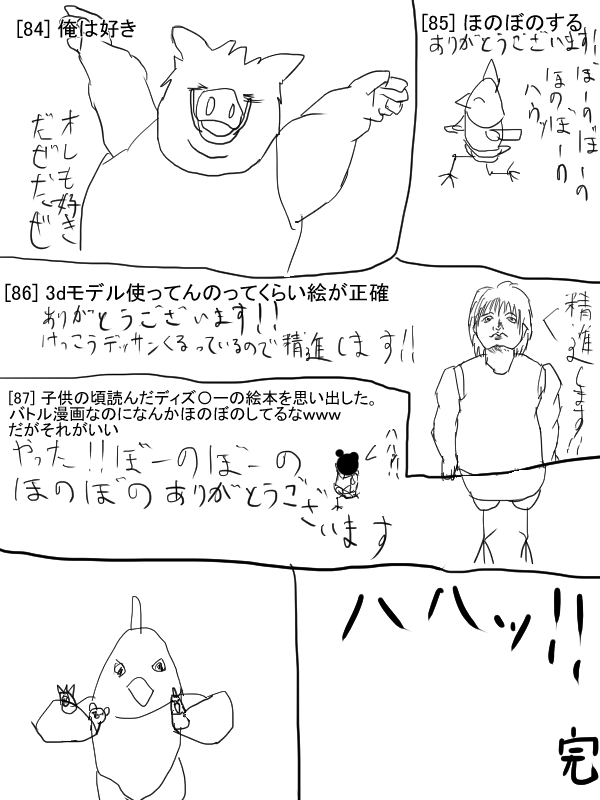 [84] 俺は好き
オレも好き
だぜだぜ
[85] ほのぼのする
ありがとうございます!
ぼーのぼーの
ほのぼーの
ハウッ
[86] 3dモデル使ってんのってくらい絵が正確
ありがとうございます!!
けっこうデッサンくるっているので精進します!!
精進します!!
[87] 子供の頃読んだディズ〇ーの絵本を思い出した。
バトル漫画なのになんかほのぼのしてるなwww
だがそれがいい
やった!!ぼーのぼーの
ほのぼのありがとうござ
います
ハハッ!!
完